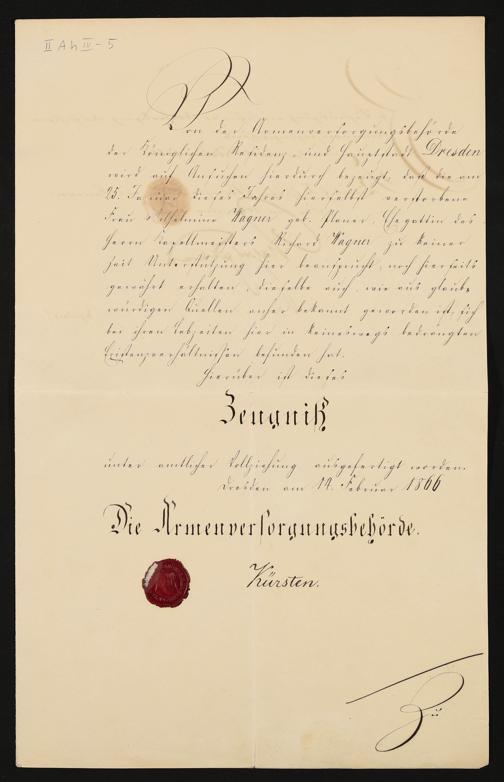 II Ah IV-5
Von der Armenversorgungsbehörde
der Königlichen Residenz- und Hauptstadt Dresden
wird auf Ansuchen hierdurch bezeugt, daß die am
25. Januar dieses Jahres hierselbst verstorbene
Frau Wilhelmine Wagner geb. Planer, Ehegattin des
Herrn Capellmeisters Richard Wagner zu keiner
Zeit Unterstützung hier beansprucht, noch hierseits
gewährt erhalten, dieselbe auch, wie aus glaub-
würdigen Quellen anher bekannt geworden ist, sich
bei ihren Lebzeiten hier in keineswegs bedrängten
Existenzverhältnissen befunden hat.
Hierüber ist dieses
Zeugniß
unter amtlicher Vollziehung ausgefertigt worden.
Dresden am 14. Februar 1866
Die Armenversorgungsbehörde.
Kürsten.
Zu